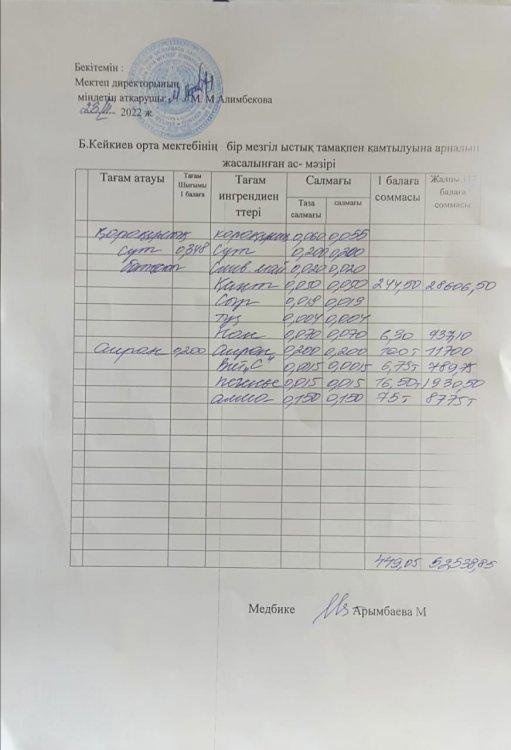 Бекітемін :
Мектеп директорының
міндетін атқарушы: М. М Алимбекова
2022 ж
Б.Кейкиев орта мектебінің бір мезгіл ыстық тамақпен қамтылуына арналып
жасалынған ас- мәзірі
Тағам атауы Тағам Шығымы 1 балаға Тағам ингрендиен ттері Салмағы 1 балаға соммасы Жалпы 117 балаға соммасы
Таза салмағы салмағы
Қарақұмық қарақұмық 0,060 0,055
сүт 0,348 Сүт 0,200 0,200
май 0,020 0,020
Қант 0,050 0,050 244,50 28606,50
0,019 0,019
тұз 0,004 0,004
Нан 0,070 0,070 6,30 737,10
айран 0,200 Айран 0,200 0,200 100т 11700
Вит "С" 0,0015 0,0015 6,75т 789,75
печенье 0,015 0,015 16,50т 1930,50
алма 0,150 0,150 75т 8775т
449,05 52538,85
Медбике Арымбаева М